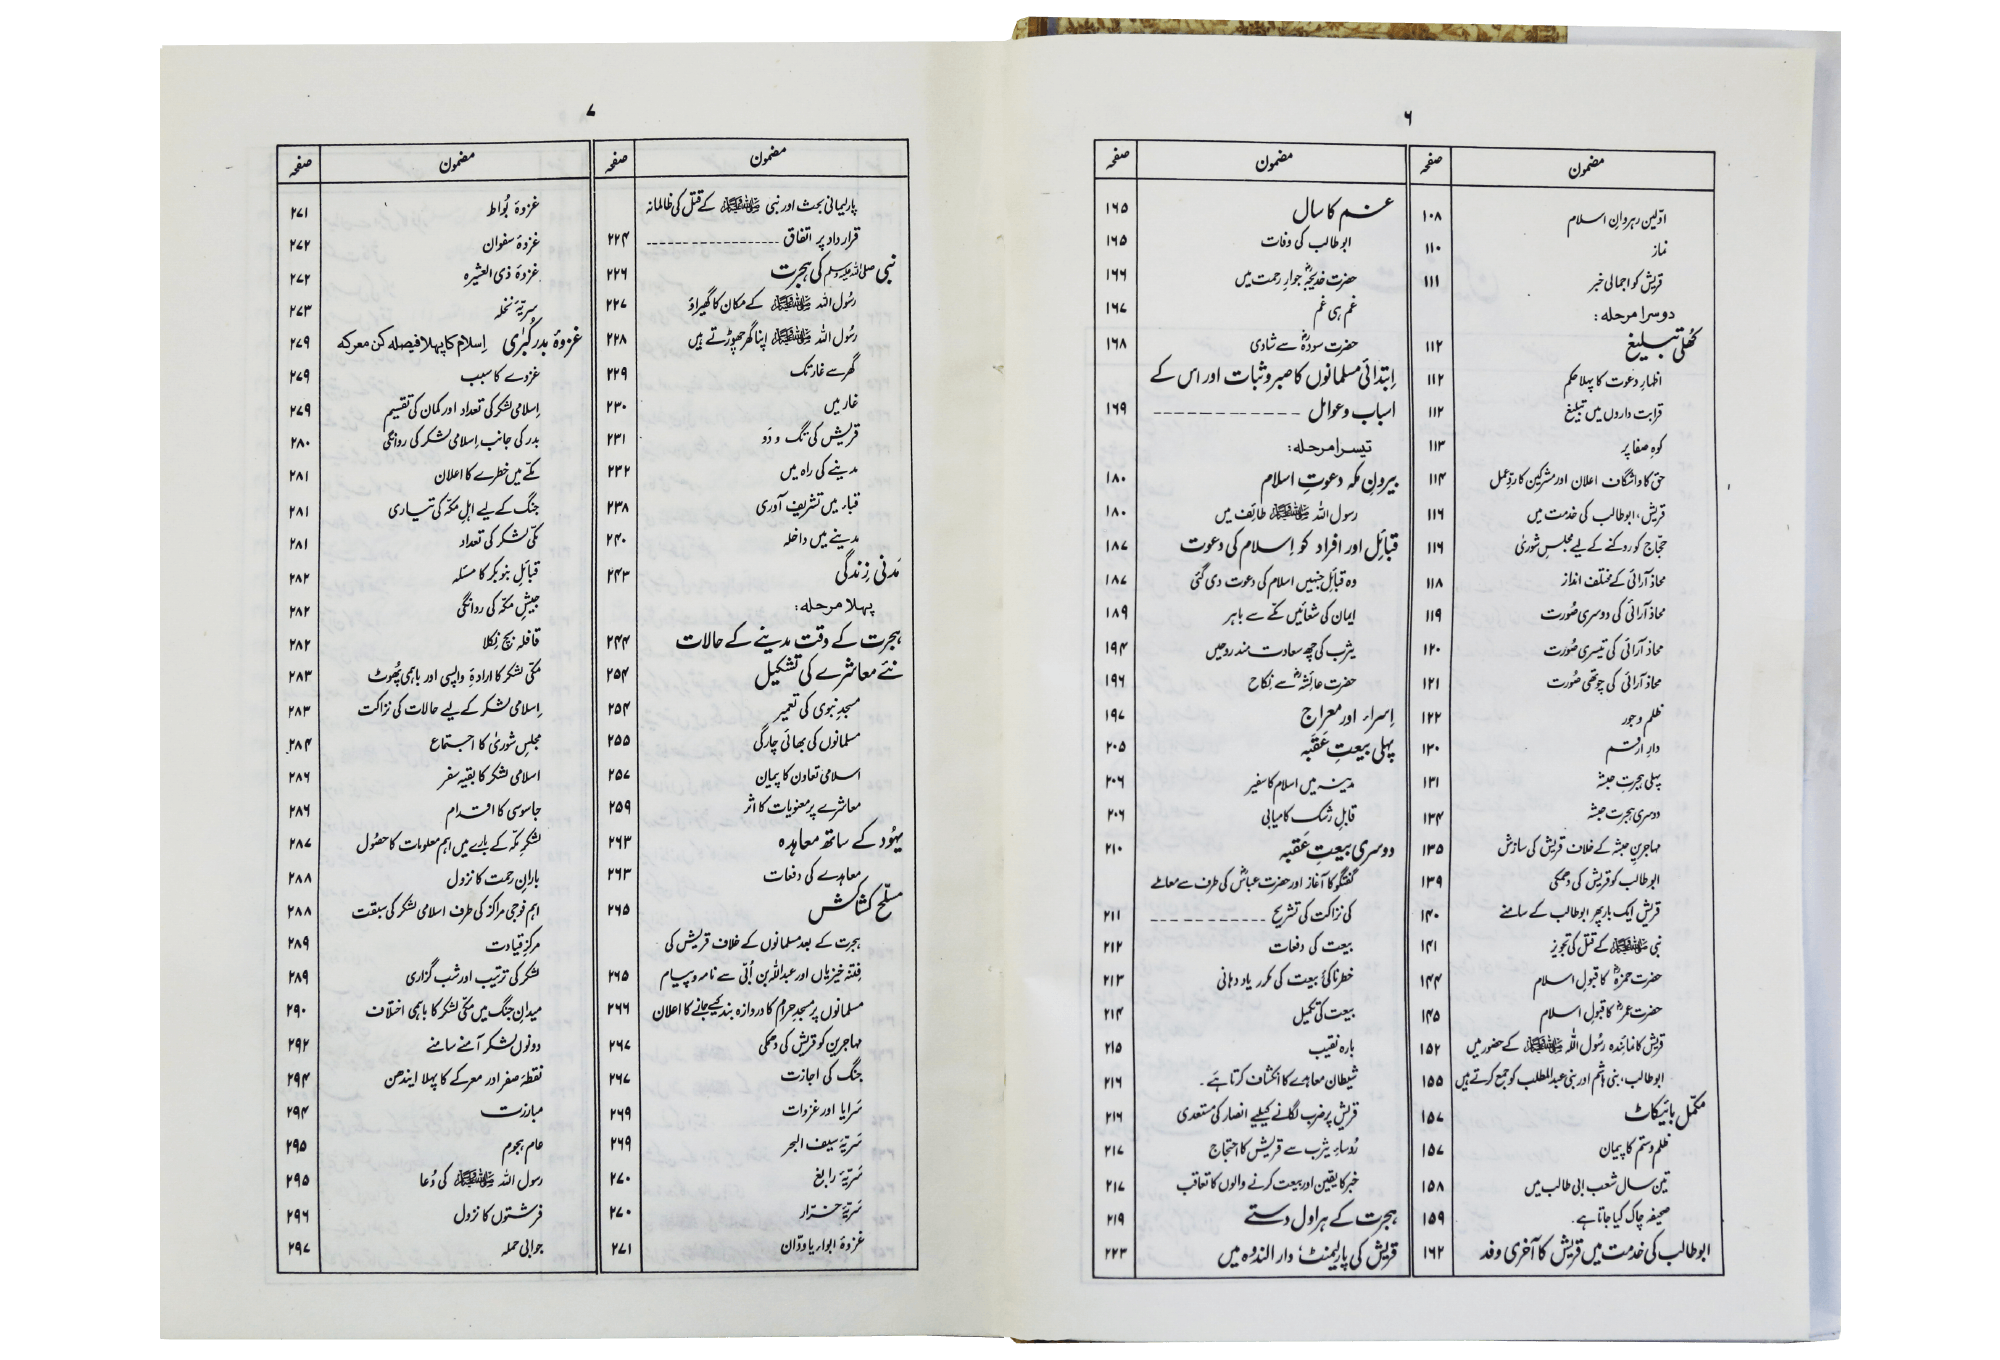 ۶
مضمون صفحہ
اوّلین رہروانِ اسلام ۱۰۸
نماز ۱۱۰
قریش کو اجمالی خبر ۱۱۱
دوسرا مرحلہ:
کُھلی تبلیغ ۱۱۲
اظہارِ دعوت کا پہلا حکم ۱۱۲
قرابت داروں میں تبلیغ ۱۱۲
کوہِ صفا پر ۱۱۳
حق کا واشگاف اعلان اور مشرکین کا ردِّعمل ۱۱۴
قریش، ابوطالب کی خدمت میں ۱۱۶
حجّاج کو روکنے کے لیے مجلسِ شوریٰ ۱۱۶
محاذ آرائی کے مختلف انداز ۱۱۸
محاذ آرائی کی دوسری صُورت ۱۱۹
محاذ آرائی کی تیسری صُورت ۱۲۰
محاذ آرائی کی چوتھی صُورت ۱۲۱
ظلم و جور ۱۲۲
دارِ ارقم ۱۳۰
پہلی ہجرتِ حبشہ ۱۳۱
دوسری ہجرت حبشہ ۱۳۴
مہاجرینِ حبشہ کے خلاف قریش کی سازش ۱۳۵
ابوطالب کو قریش کی دھمکی ۱۳۹
قریش ایک بار پھر ابوطالب کے سامنے ۱۴۰
نبی ﷺ کے قتل کی تجویز ۱۴۱
حضرت حمزہؓ کا قبولِ اسلام ۱۴۴
حضرت عمرؓ کا قبولِ اسلام ۱۴۵
قریش کا نمائندہ رسُول اللہ ﷺ کے حضور میں ۱۵۲
ابوطالب، بنی ہاشم اور بنی عبدالمطلب کو جمع کرتے ہیں ۱۵۵
مکمل بائیکاٹ ۱۵۷
ظلم و ستم کا پیمان ۱۵۷
تین سال شعب ابی طالب میں ۱۵۸
صحیفہ چاک کیا جاتا ہے۔ ۱۵۹
ابوطالب کی خدمت میں قریش کا آخری وفد ۱۶۲
مضمون صفحہ
غم کا سال ۱۶۵
ابوطالب کی وفات ۱۶۵
حضرت خدیجہؓ جوارِ رحمت میں ۱۶۶
غم ہی غم ۱۶۷
حضرت سودہؓ سے شادی ۱۶۸
اِبتدائی مسلمانوں کا صبر و ثبات اور اس کے
اسباب و عوامل ۱۶۹
تیسرا مرحلہ:
بیرونِ مکہ دعوتِ اسلام ۱۸۰
رسول اللہ ﷺ طائف میں ۱۸۰
قبائل اور افراد کو اِسلام کی دعوت ۱۸۷
وہ قبائل جنہیں اسلام کی دعوت دی گئی ۱۸۷
ایمان کی شعائیں مکّے سے باہر ۱۸۹
یثرب کی چھ سعادت مند روحیں ۱۹۴
حضرت عائشہؓ سے نکاح ۱۹۶
اِسراء اور معراج ۱۹۷
پہلی بیعتِ عَقَبہ ۲۰۵
مدینہ میں اسلام کا سفیر ۲۰۶
قابلِ رشک کامیابی ۲۰۶
دوسری بیعتِ عَقَبہ ۲۱۰
گفتگو کا آغاز اور حضرت عباسؓ کی طرف سے معاملے
کی نزاکت کی تشریح ۲۱۱
بیعت کی دفعات ۲۱۲
خطرناکئ بیعت کی مکرر یاد دہانی ۲۱۳
بیعت کی تکمیل ۲۱۴
بارہ نقیب ۲۱۵
شیطان معاہدے کا انکشاف کرتا ہے۔ ۲۱۶
قریش پر ضرب لگانے کیلیے انصار کی مستعدی ۲۱۶
رُوساءِ یثرب سے قریش کا احتجاج ۲۱۷
خبر کا یقین اور بیعت کرنے والوں کا تعاقب ۲۱۷
ہجرت کے ہراول دستے ۲۱۹
قریش کی پارلیمنٹ، دار الندوہ میں ۲۲۳
۷
مضمون صفحہ
پارلیمانی بحث اور نبی ﷺ کے قتل کی ظالمانہ
قرارداد پر اتفاق ۲۲۴
نبی صلی اللہ علیہ وسلم کی ہجرت ۲۲۶
رسُول اللہ ﷺ کے مکان کا گھیراؤ ۲۲۷
رسُول اللہ ﷺ اپنا گھر چھوڑتے ہیں ۲۲۸
گھر سے غار تک ۲۲۹
غار میں ۲۳۰
قریش کی تگ و دَو ۲۳۱
مدینے کی راہ میں ۲۳۲
قباء میں تشریف آوری ۲۳۸
مدینے میں داخلہ ۲۴۰
مَدنی زِندگی ۲۴۳
پہلا مرحلہ:
ہجرت کے وقت مدینے کے حالات ۲۴۴
نئے معاشرے کی تشکیل ۲۵۴
مسجدِ نبوی کی تعمیر ۲۵۴
مسلمانوں کی بھائی چارگی ۲۵۵
اسلامی تعاون کا پیمان ۲۵۷
معاشرے پر معنویات کا اثر ۲۵۹
یہُود کے ساتھ معاہدہ ۲۶۳
معاہدے کی دفعات ۲۶۳
مسلّح کشاکش ۲۶۵
ہجرت کے بعد مسلمانوں کے خلاف قریش کی
فتنہ خیزیاں اور عبداللہ بن اُبّی سے نامہ و پیام ۲۶۵
مسلمانوں پر مسجدِ حرام کا دروازہ بند کیے جانے کا اعلان ۲۶۶
مہاجرین کو قریش کی دھمکی ۲۶۷
جنگ کی اجازت ۲۶۷
سَرایا اور غزوات ۲۶۹
سَریّۂ سیف البحر ۲۶۹
سَریّۂ رابغ ۲۷۰
سَریّۂ خرّار ۲۷۰
غزوۂ ابواء یا ودّان ۲۷۱
مضمون صفحہ
غزوۂ بُواط ۲۷۱
غزوۂ سفوان ۲۷۲
غزوۂ ذی العشیرہ ۲۷۲
سریّۂ نخلہ ۲۷۳
غزوۂ بدر کُبریٰ اِسلام کا پہلا فیصلہ کن معرکہ ۲۷۹
غزوے کا سبب ۲۷۹
اِسلامی لشکر کی تعداد اور کمان کی تقسیم ۲۷۹
بدر کی جانب اِسلامی لشکر کی روانگی ۲۸۰
مکّے میں خطرے کا اعلان ۲۸۱
جنگ کے لیے اہلِ مکّہ کی تیاری ۲۸۱
مکّی لشکر کی تعداد ۲۸۱
قبائل بنو بکر کا مسئلہ ۲۸۲
جیشِ مکّہ کی روانگی ۲۸۲
قافلہ بچ نکلا ۲۸۲
مکّی لشکر کا ارادۂ واپسی اور باہمی پُھوٹ ۲۸۳
اِسلامی لشکر کے لیے حالات کی نزاکت ۲۸۳
مجلسِ شوریٰ کا اجتماع ۲۸۴
اسلامی لشکر کا بقیہ سفر ۲۸۶
جاسوسی کا اقدام ۲۸۶
لشکرِ مکّہ کے بارے میں اہم معلومات کا حصُول ۲۸۷
بارانِ رحمت کا نزول ۲۸۸
اہم فوجی مراکز کی طرف اسلامی لشکر کی سبقت ۲۸۸
مرکزِ قیادت ۲۸۹
لشکر کی ترتیب اور شب گزاری ۲۸۹
میدانِ جنگ میں مکّی لشکر کا باہمی اختلاف ۲۹۰
دونوں لشکر آمنے سامنے ۲۹۲
نقطۂ صفر اور معرکے کا پہلا ایندھن ۲۹۴
مبارزت ۲۹۴
عام ہجوم ۲۹۵
رسول اللہ ﷺ کی دُعا ۲۹۵
فرشتوں کا نزول ۲۹۶
جوابی حملہ ۲۹۷